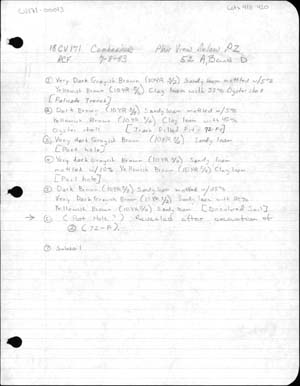 18CV171
Lots 918-920
18CV171 Plan View Below PZ
ACF 7-8-83 52 A, B and D
① Very Dark Grayish Brown (10YR 3/2) Sandy loam mottled w/5%
Yellowish Brown (10YR 5/6) Clay loam with 25% Oyster shell
[Palisade Trench]
② Dark Brown (10YR 3/3) Sandy loam mottled w/5%
Yellowish Brown (10YR 5/6) Clay loam with 15%
Oyster shell
③ Very Dark Grayish Brown (10YR 3/2) Sandy loam
[Post hole]
④ Very Dark Grayish Brown (10YR 3/2) Sandy loam
mottled w/10% Yellowish Brown (10YR 5/6) Clay loam
[Post hole]
⑤ Dark Brown (10YR 3/3) Sandy loam mottled w/25%
Very Dark Grayish Brown (10YR 3/2) Sandy loam with
Yellowish Brown (10YR 5/6) Sandy loam [Disturbed Soil]
→ ⑥ (Post Hole?) Revealed after excavation of
② (72-A).
⑦ Subsoil